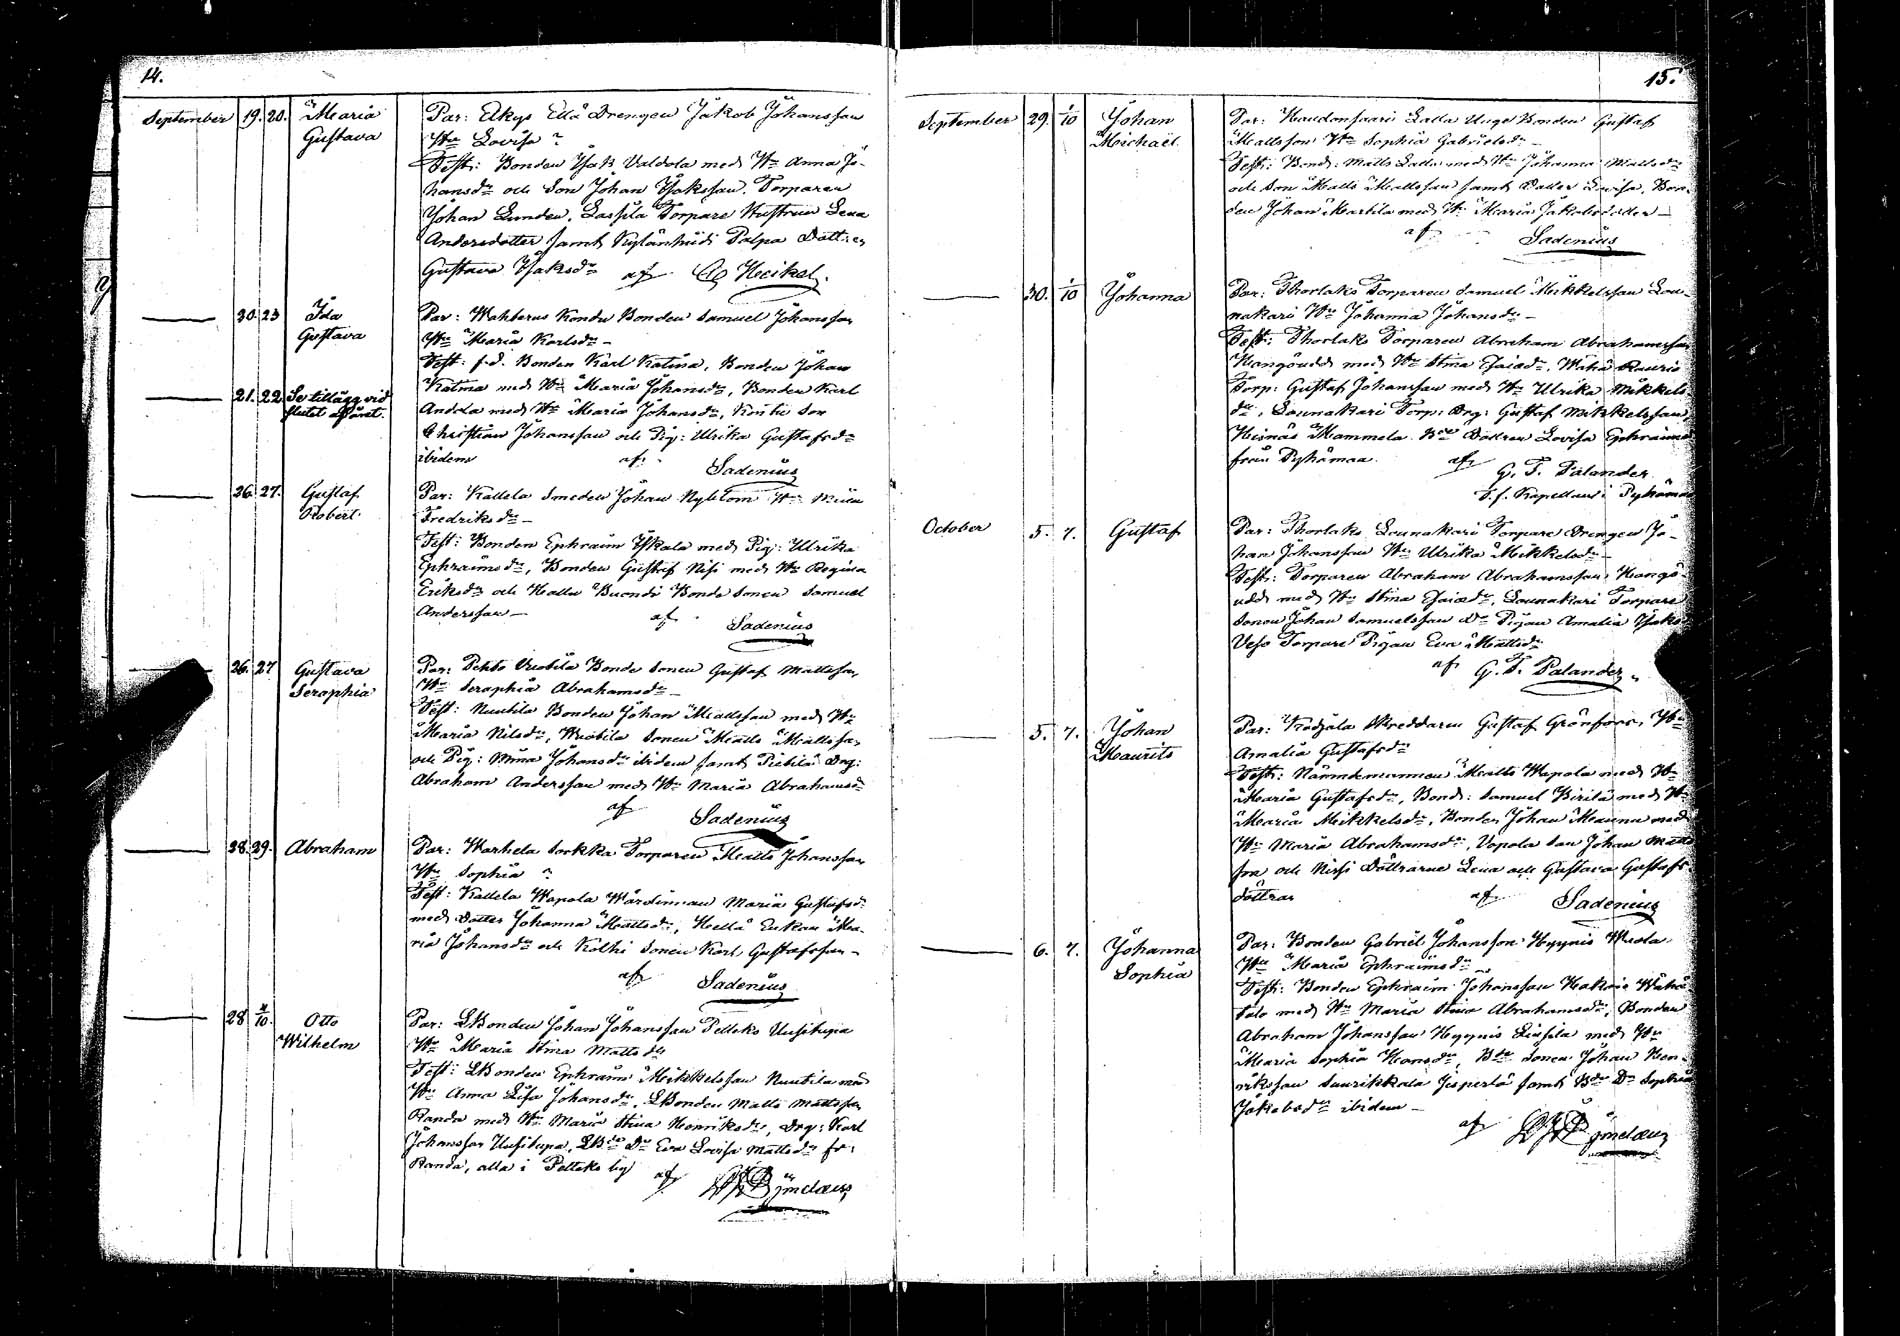 14.
September 19. 20. Maria Gustava
Par: Elkys Ellä Drengen Jakob Johansson
Hu Lovisa ?
Test: Bonden Isak Valdola med Hu Anna Jo-
hansdr och Son Johan Isaksson, Torparen
Johan Lunden, Lassila Torpare Hustrun Lena
Andersdotter samt Kylänhiidi Palpa Dottren
Gustava Isaksdr af C Heikel.
20. 23 Ida Gustava
Par: Wahterus Kondu Bonden Samuel Johansson
Hu Maria Karlsdr
Test: f.d. Bonden Karl Katina, Bonden Johan
Katina med Hu Maria Johansdr, Bonden Karl
Andola med Hu Maria Johansdr, Son
Christian Johansson och Pig: Ulrika Gustafsdr
ibidem af Sadenius
21. 22 Se tillägg vid slutet af året.
26. 27. Gustaf Robert.
Par: Kallela Smeden Johan Nyblom Hu Mina
Fredriksdr
Test: Bonden Ephraim Yskala med Pig: Ulrika
Ephraimsdr, Bonden Gustaf Nisi med Hu Regina
Eriksdr och Hallu Buondi Bonde Sonen Samuel
Andersson af Sadenius
26. 27 Gustava Seraphia
Par: Pehto Uusitila Bonde Sonen Gustaf Mattsson
Hu Seraphia Abrahamsdr
Test: Nuutila Bonden Johan Mattsson med Hu
Maria Nilsdr, Sonen Matts Mattsson
och Pig: Mina Johansdr ibidem samt Pietilä Drg:
Abraham Andersson med Hu Maria Abrahamsdr
af
Sadenius
28. 29. Abraham
Par: Warhela Sorkka Torparen Matts Johansson
Hu Sophia ?
Test: Kallela Wapola Wärdinnan Maria Gustafsdr
med Dotter Johanna Mattsdr, Hellä Enkan Ma-
ria Johansdr och Kolhi Sonen Karl Gustafsson
af Sadenius
28 2/10. Otto Wilhelm
Par: LBonden Johan Johansson Palleks Uusikupia
Hu Maria Stina Mattsdr
Test: LBonden Ephraim Mikkelsson Nuutila med
Hu Anna Lisa Johansdr, LBonden Matts Mattsson
Randa med Hu Maria Stina Henriksdr, Drg: Karl
Johansson Uusikupa, LBde Dr Eva Lovisa Mattsdr fr:
Randa, alla i Palleks by af
15.
September 29. 1/10 Johan Michaël.
Par: Haudonsaari Lalla Unge Bonden Gustaf
Mattsson Hu Sophia Gabrielsdr
Test: Bond: Matts Lalla med Hu Johanna Mattsdr
och Son Matts Mattsson samt Dotter Lovisa, Bon-
den Johan Markila med Hu Maria Jakobsdotter
af Sadenius
30. 1/10 Johanna
Par: Thorlaks Torparen Samuel Mikkelsson Lou-
nakari Hu Johanna Johansdr
Test: Thorlaks Torparen Abraham Abrahamsson
Hangöudd med Hu Stina Esaiædr, Wähä Rauvis
Torp: Gustaf Johansson med Hu Ulrika Mikkels
dr, Lounakari Torp: Drg: Gustaf Mikkelsson,
Heinäs Mammela Bde Dottren Lovisa Ephraims
från Pyhämaa. af G. T. Palander
t.f. Kapellan i Pyhämaa
October 5. 7. Gustaf
Par: Thorlaks Lounakari Torpare Drengen Jo-
han Johansson Hu Ulrika Mikkelsdr
Test: Torparen Abraham Abrahamsson Hangö-
udd med Hu Stina Esaiædr, Lounakari Torpare
Sonen Johan Samuelsson Dr Pigan Amalia Isaks
Veso Torpare Pigan Eva Mattsdr
af G. T. Palander
5. 7. Johan Maurits
Par: Kodjala Skreddaren Gustaf Grönfors, Hu
Amalia Gustafsdr
Test: Nämndemannen Matts Wapola med Hu
Maria Gustafsdr, Bond: Samuel Birilä med Hu
Maria Mikkelsdr, Bonden Johan Mauna med
Hu Maria Abrahamsdr, Vapola Son Johan Matts
son och Nissi Döttrarne Lena och Gustava Gustafs
döttrar af Sadenius
6. 7. Johanna Sophia
Par: Bonden Gabriel Johansson Hyynis
Hu Maria Ephraimsdr
Test: Bonden Ephraim Johansson Hakois Wähä
talo med Hu Maria Stina Abrahamsdr, Bonden
Abraham Johansson Hyynis Liesila med Hu
Maria Sophia Hansdr, Bde Sonen Johan Hen-
riksson Saurikkala Jesperlä samt Bde Dr Sophia
Jakobsdr ibidem
af